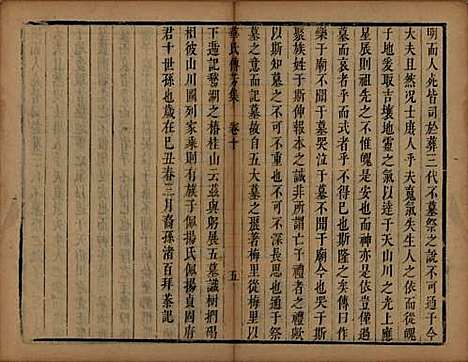 明而人死皆司於葬三代不墓祭之說不可通于今
大夫且然況士庶人乎夫䰟氣失生人之依而從魄
子地爰取吉壤地靈之氣以達于天山川之光上應
星辰則祖先之不惟魄是安也而神亦是依豈得過
墓而哀者乎而式者乎已也斯隆之矣傳曰作
樂于廟不聞于墓哭泣于墓不聞于廟今也哭于斯
聚族姓于斯伸報本之誠非所謂亡于禮者之禮與
以斯知墓之不可不重也不可不深長思也
墓之意而記墓故自五大墓之碾著梅里從梅里以
下遞記鵞湖之椿桂山云茲與躬展五墓識樹捫碑
按山川圖列家乘有族子佩揚氏佩揚貞固府
君十世孫也歲在己丑春三月裔孫渚百拜恭記
華氏傳芳集
卷十
五